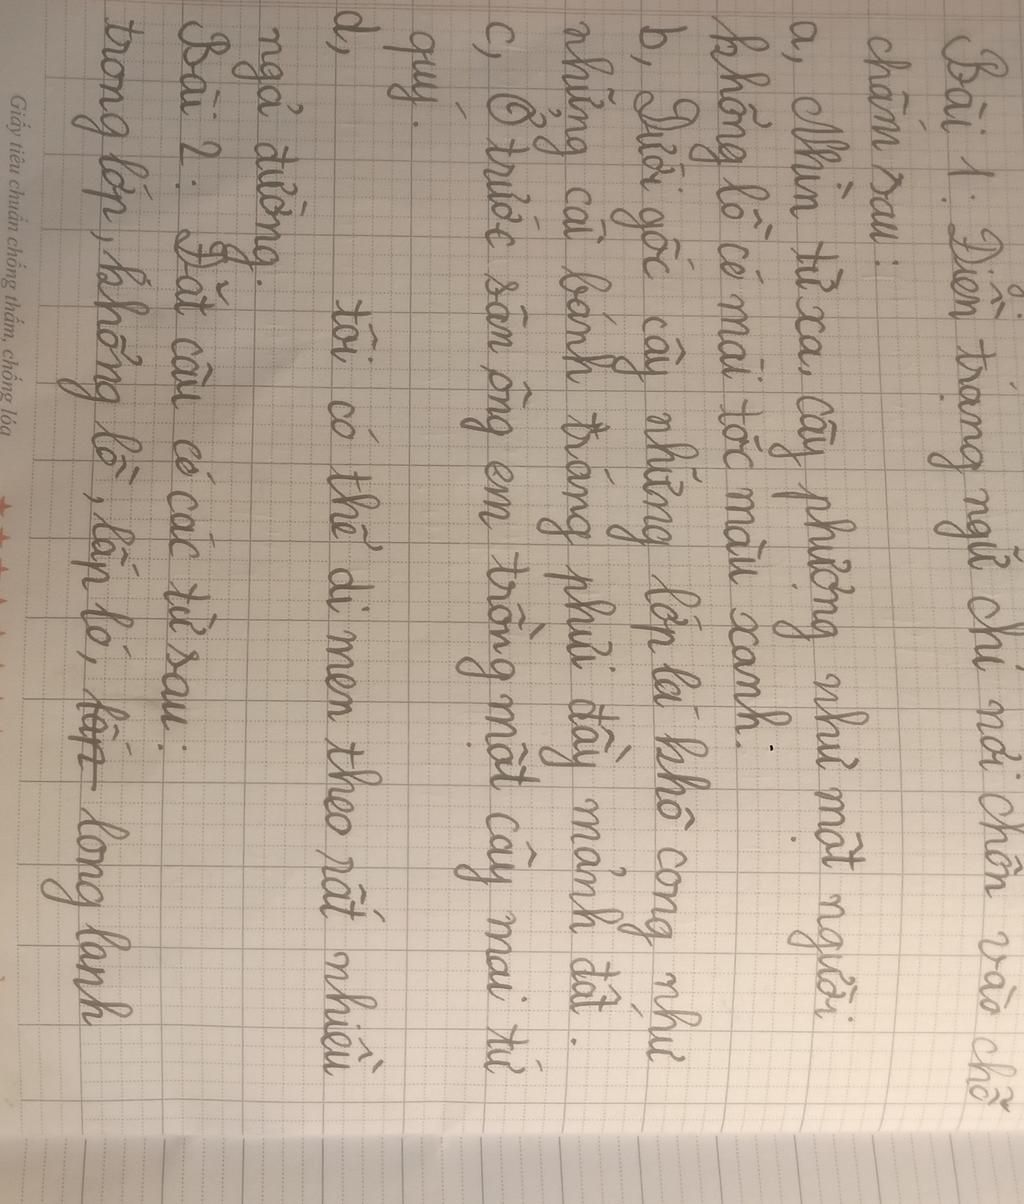 Bài 1: Điền trạng ngữ chỉ nơi chốn vào chỗ
chấm sau:
a, Nhìn từ xa, cây phượng như một người
khổng lồ có mái tóc màu xanh.
b, Dưới gốc cây những lớp lá khô cong như
những cái bánh tráng phủi đầy mảnh đất.
c, Ở trước sân ông em trồng một cây mai tứ
quý.
d, tôi có thể đi men theo rất nhiều
ngả đường.
Bài 2: Đặt câu có các từ sau:
trong lớp, khổng lồ, lấp ló, long lanh
Giấy tiêu chuẩn chống thấm, chống lóa